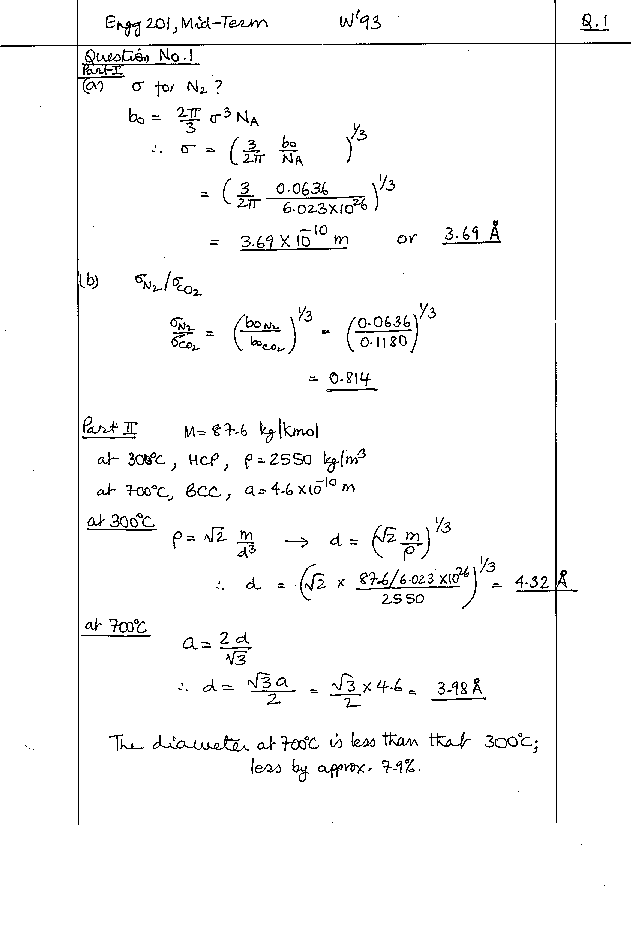 Engg 201, Mid-Term W'93 Q.1
Question No.1
Part I
(a) σ for N₂ ?
b₀ = 2π/3 σ³ N_A
∴ σ = (3/2π b₀/N_A)^1/3
= (3/2π 0.0636/6.023×10²⁶)^1/3
= 3.69 × 10⁻¹⁰ m or 3.69 Å
(b) σ_N₂/σ_CO₂
σ_N₂/σ_CO₂ = (b₀_N₂/b₀_CO₂)^1/3 = (0.0636/0.1180)^1/3
= 0.814
Part II M = 87.6 kg/kmol
at 300°C, HCP, ρ = 2550 kg/m³
at 700°C, BCC, a = 4.6 ×10⁻¹⁰ m
at 300°C ρ = √2 m/d³ → d = (√2 m/ρ)^1/3
∴ d = (√2 × 87.6/6.023 ×10²⁶/2550)^1/3 = 4.32 Å
at 700°C
a = 2d/√3
∴ d = √3 a/2 = √3/2 × 4.6 = 3.98 Å
The diameter at 700°C is less than that 300°C;
less by approx. 7.9%.